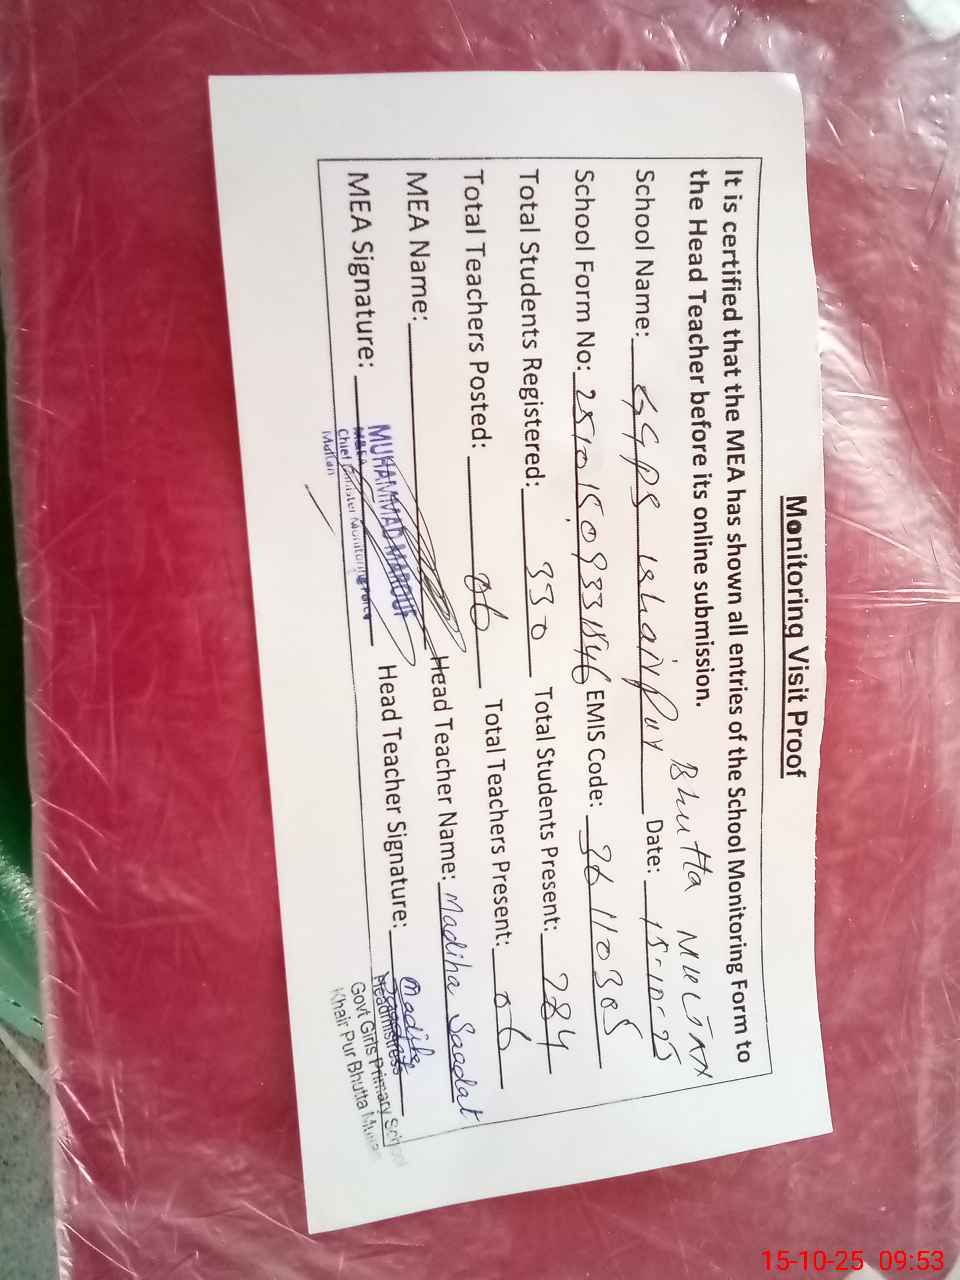 Monitoring Visit Proof
It is certified that the MEA has shown all entries of the School Monitoring Form to
the Head Teacher before its online submission.
Bhutta Multan
School Name: GGPS Khairpur Date: 15-10-25
School Form No: 25101509331846 EMIS Code: 36110305
Total Students Registered: 330 Total Students Present: 284
Total Teachers Posted: 06 Total Teachers Present: 06
MEA Name: Head Teacher Name: Madiha Saadat
MEA Signature: MUHAMMAD MAROUF Head Teacher Signature: Madiha
Chief Minister Monitoring Force
Multan
Headmistress
Govt Girls Primary School
Khair Pur Bhutta Multan
15-10-25 09:53